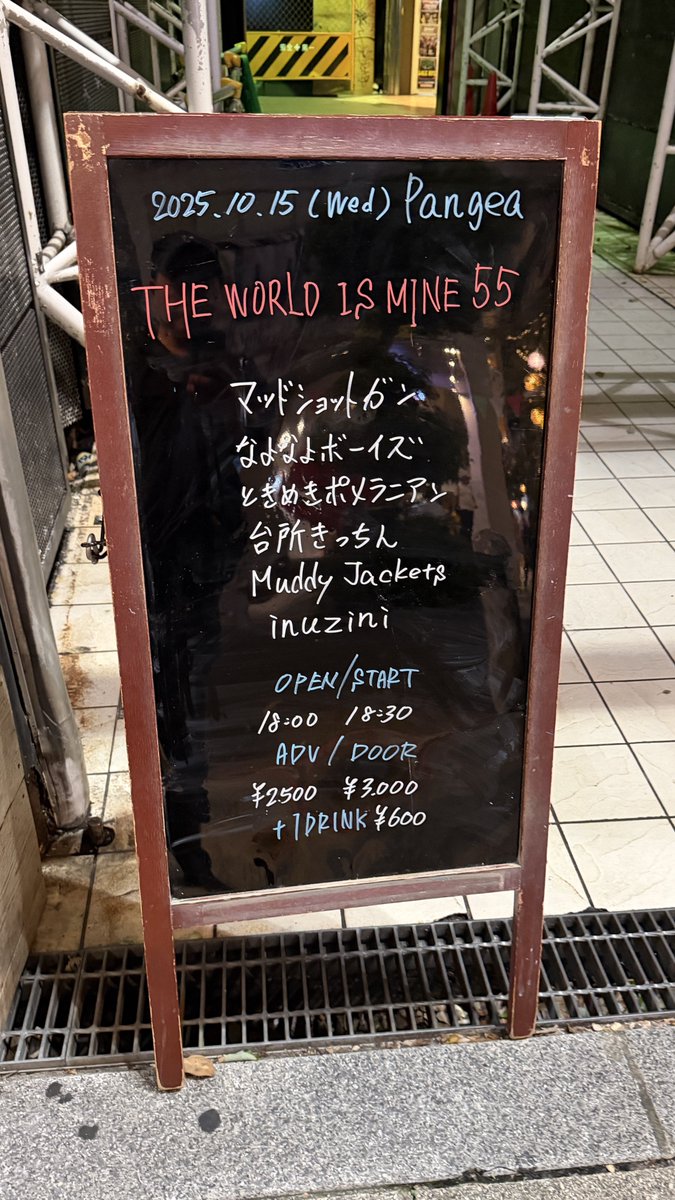 安全十第一
2025.10.15 (Wed) Pangea
THE WORLD IS MINE 55
マッドショットガン
なよなよボーイズ
ときめきポメラニアン
台所きっちん
Muddy Jackets
inuzini
OPEN/START
18:00 18:30
ADV/DOOR
¥2500 ¥3.000
+1DRINK ¥600